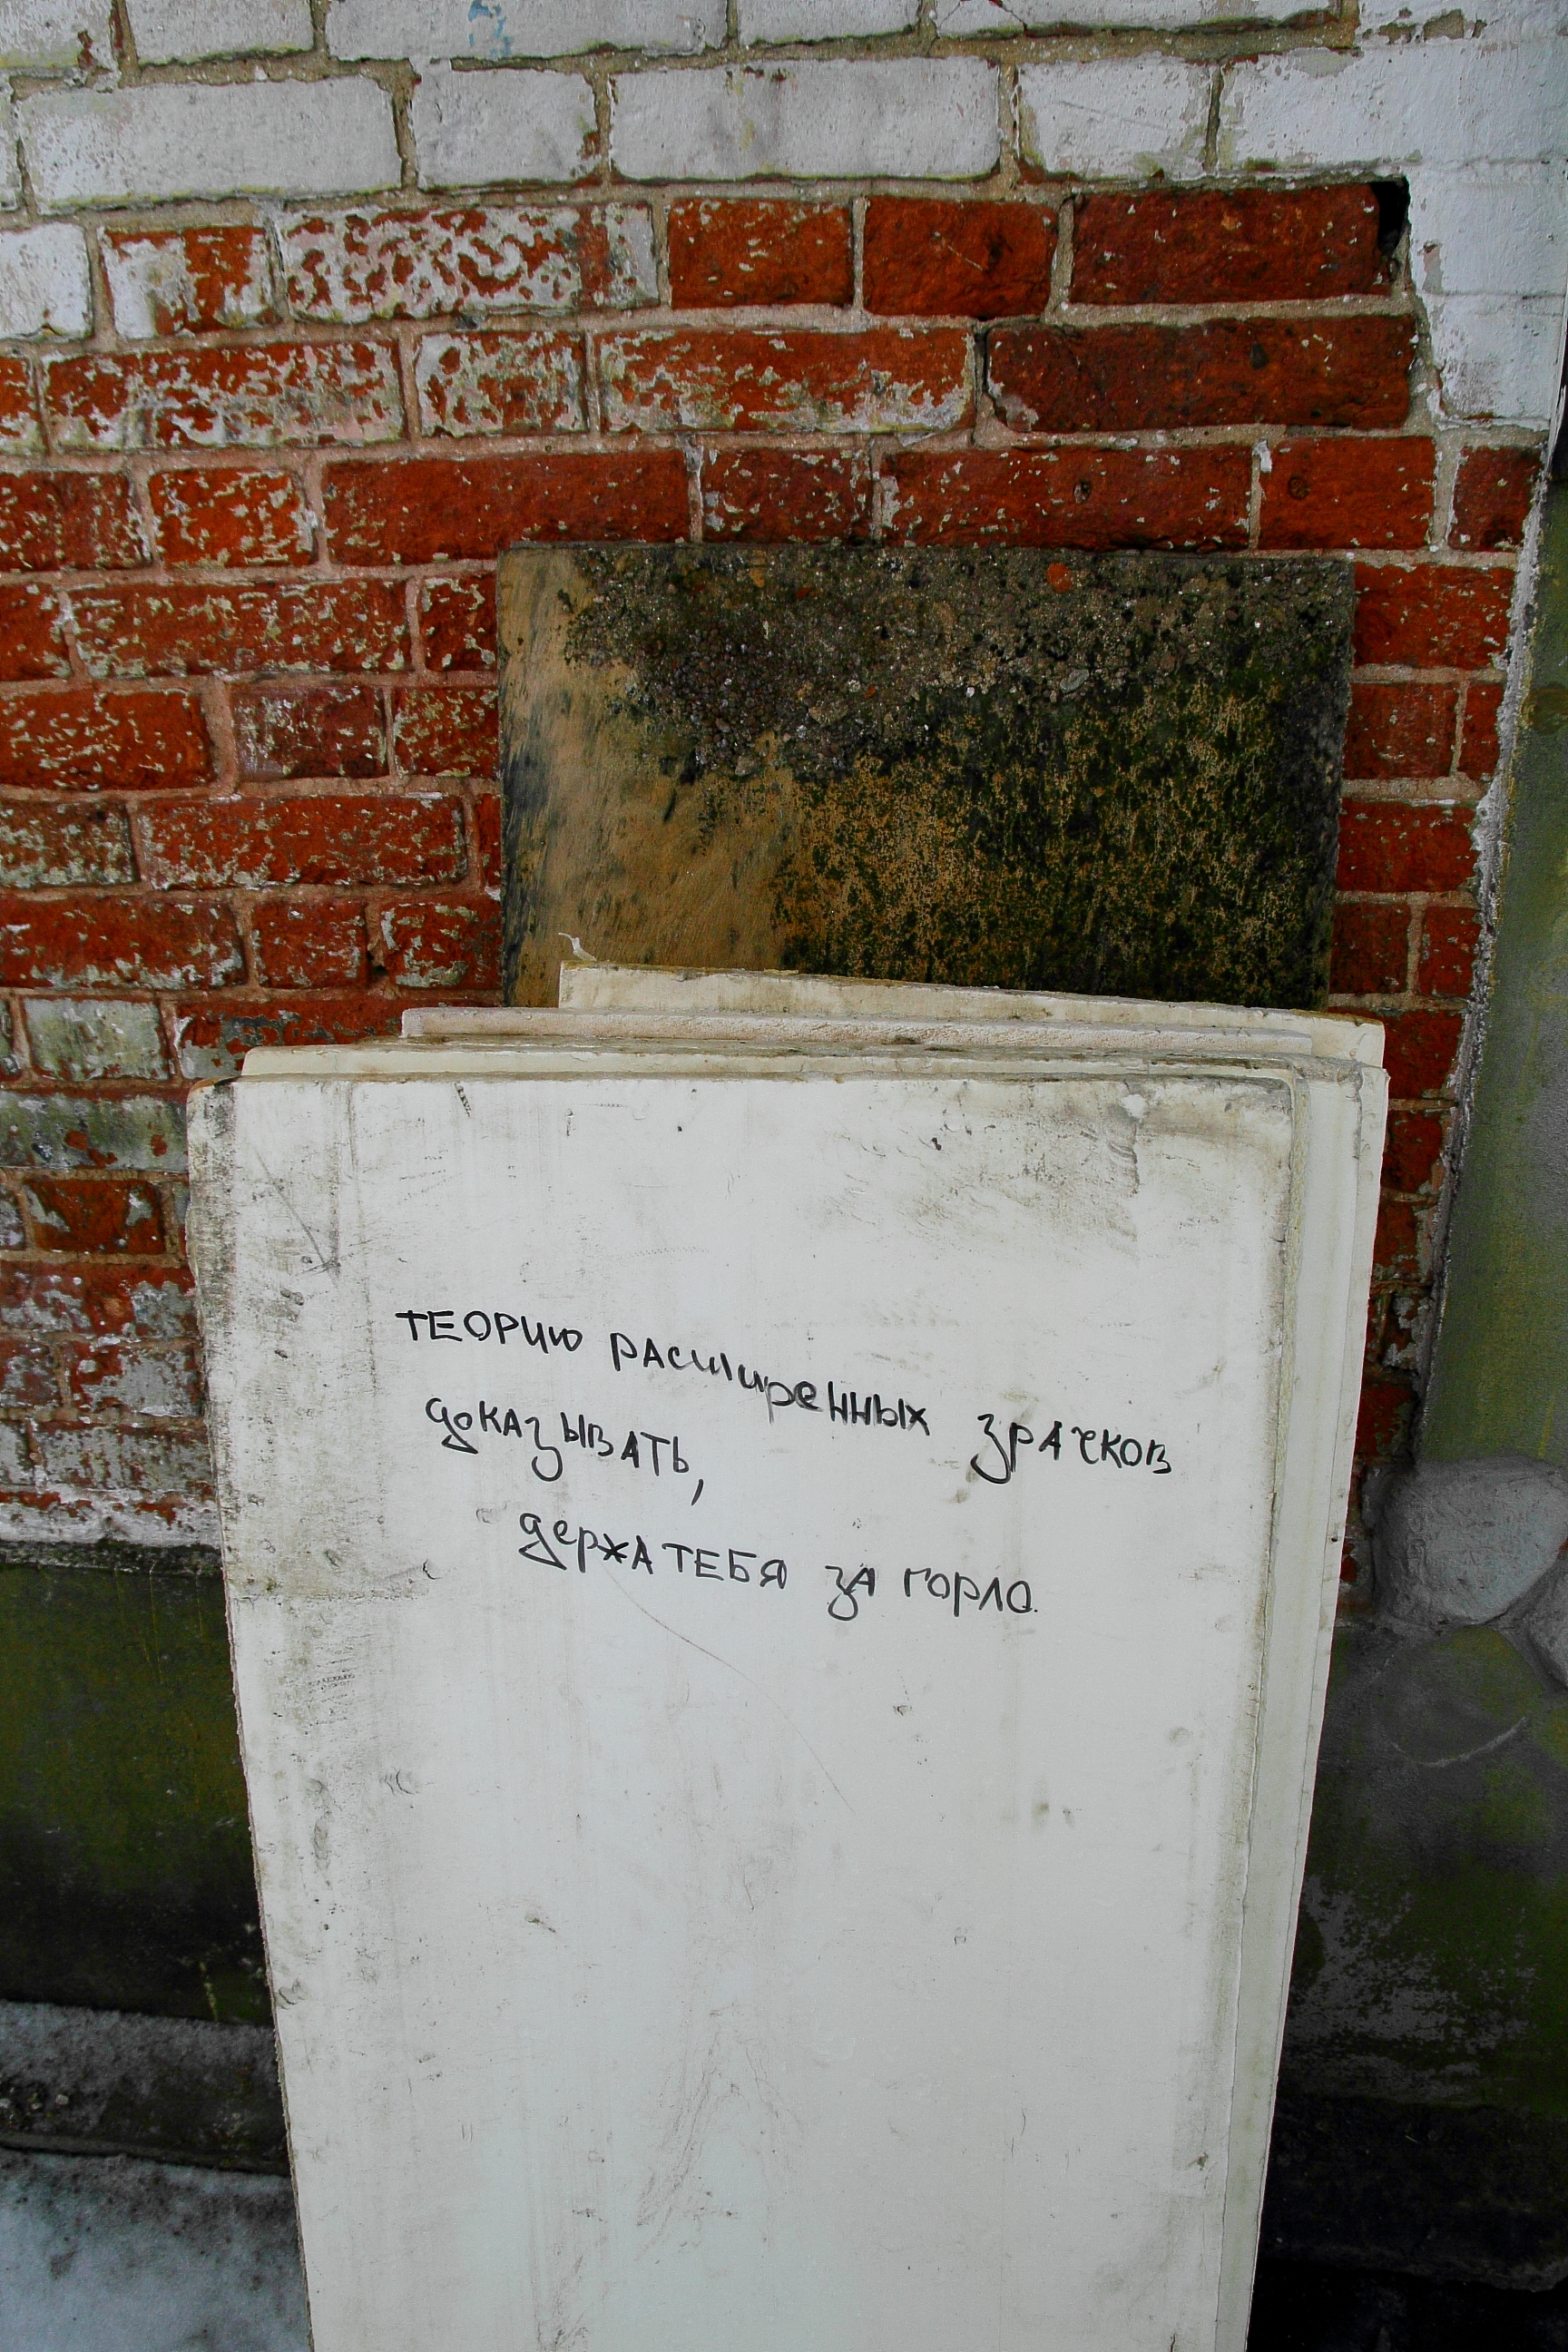 ТЕОРИЮ РАСШИРЕННЫХ ЗРАЧКОВ
ДОКАЗЫВАТЬ,
ДЕРЖА ТЕБЯ ЗА ГОРЛО.